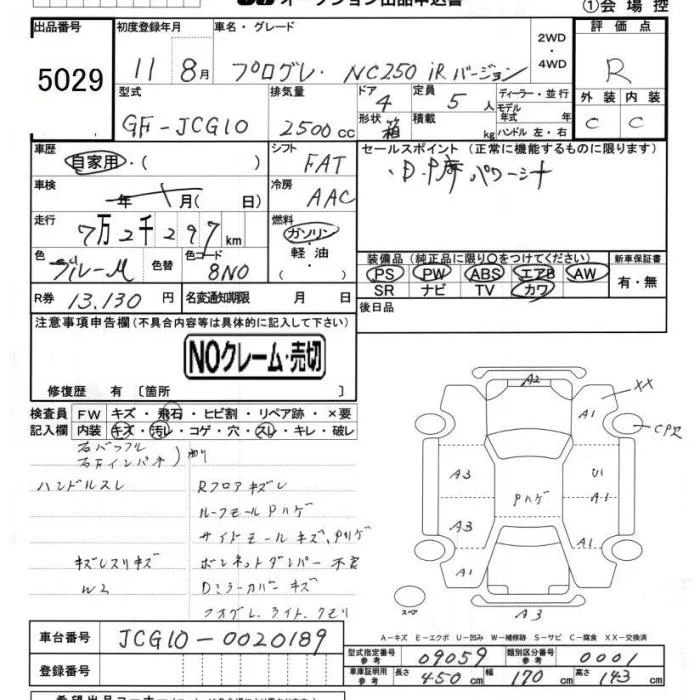 オークション出品申込書
①会場控
出品番号 5029
初度登録年月 11 8月
車名・グレード プログレ・NC250 iRバージョン
2WD・4WD
評価点 R
型式 GF-JCG10
排気量 2500cc
ドア 4
形状 箱
定員 5人
積載 kg
ディーラー・並行
モデル年式 年
ハンドル 左・右
外装 C
内装 C
車歴 自家用・( )
シフト FAT
セールスポイント (正常に機能するものに限ります)
車検 年 月( 日)
冷房 AAC
走行 7万2千297km
燃料 ガソリン・軽油・( )
色 ブルーM
色替
色コード 8N0
R券 13.130円
名変通知期限 月 日
装備品 (純正品に限り○をつけてください)
PS PW ABS エアB AW
SR ナビ TV カワ
新車保証書 有・無
後日品
注意事項申告欄(不具合内容等は具体的に記入して下さい)
NOクレーム・売切
修復歴 有〔箇所 〕
検査員記入欄
FW キズ・飛石・ヒビ割・リペア跡・×要
内装 キズ・汚レ・コゲ・穴・スレ・キレ・破レ
右バッフル
右Fインパネ
ハンドルスレ
Rフロアキズレ
ルーフモールPハゲ
サイドモールキズ、Pハゲ
キズレスリキズ
ボンネットダンパー不良
W2
Dミラーカバーキズ
フォグL、ライト、クモリ
A2
XX
A1
A3
U1
A1
Pハゲ
A3
A1
A1
スペア
A3
A-キズ E-エクボ U-凹み W-補修跡 S-サビ C-腐食 XX-交換済
車台番号 JCG10-0020189
登録番号
型式指定番号 参考 09059
類別区分番号 参考 0001
車庫証明用 参考 長さ 450cm 幅 170cm 高さ 143cm